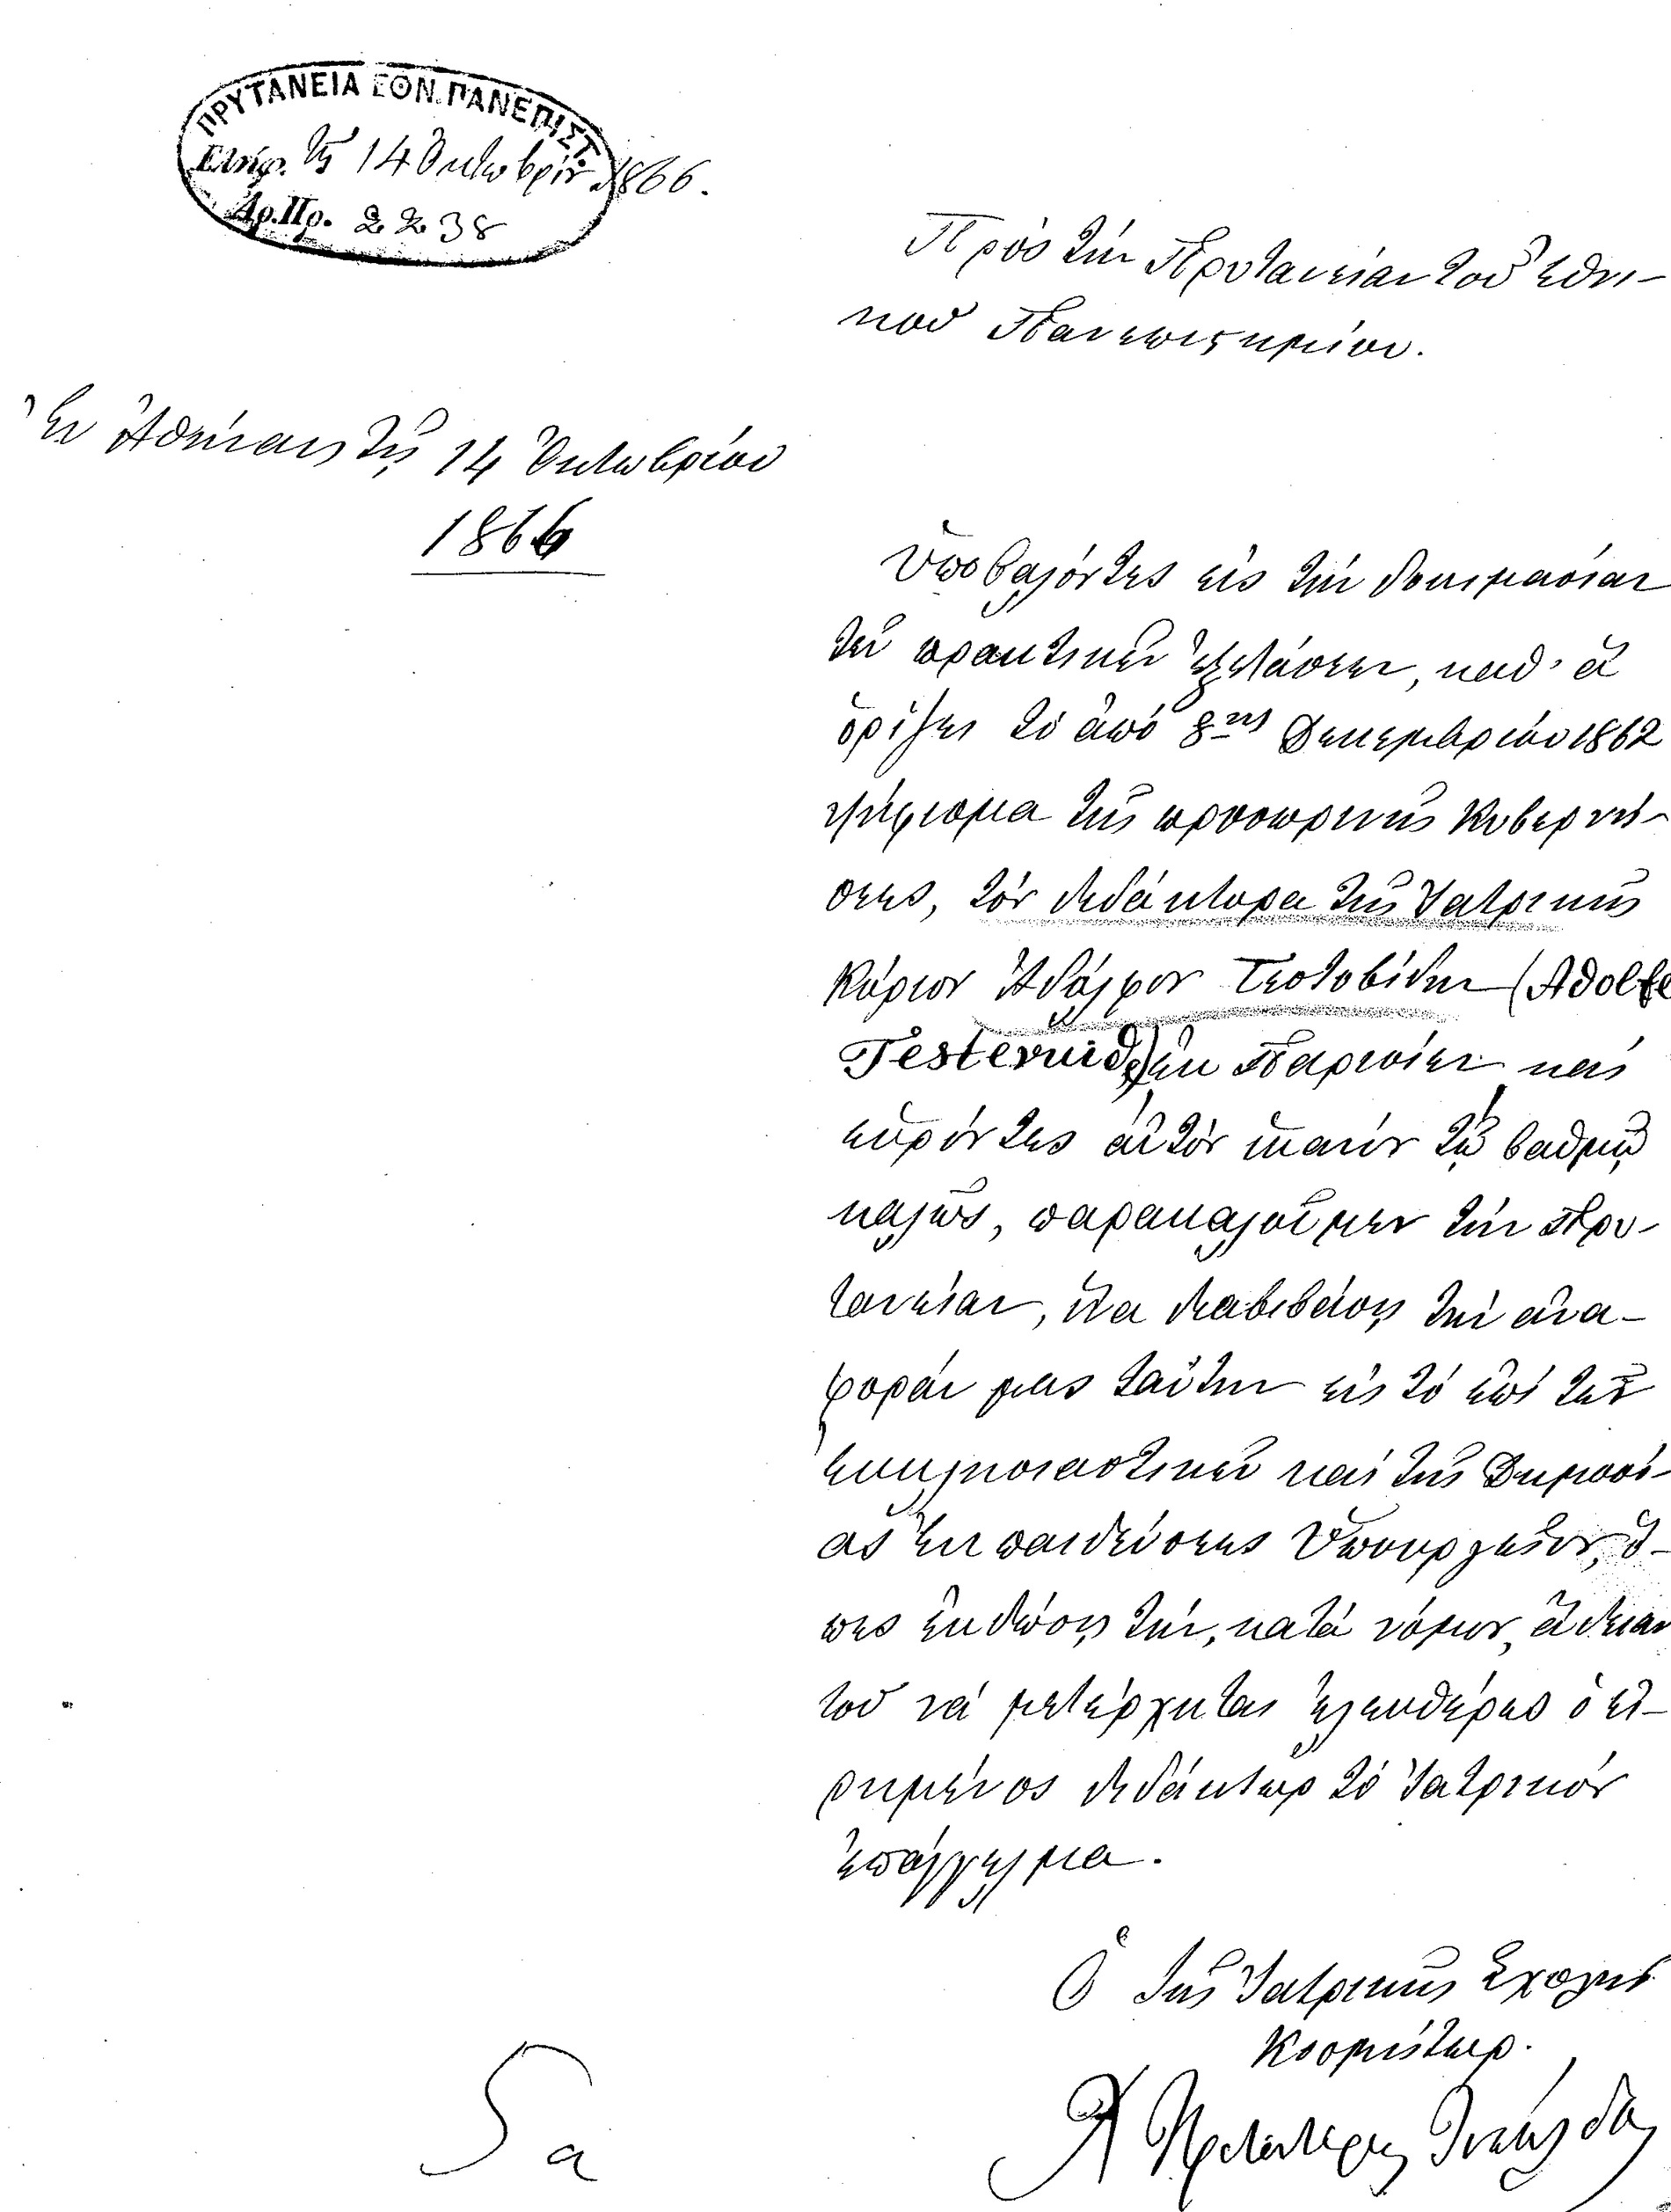 ΠΡΥΤΑΝΕΙΑ ΕΘΝ. ΠΑΝΕΠΙΣΤ.
Ἐλήφ. τῇ 14 Ὀκτωβρίου 1866.
Ἀρ. Πρ. 2238
Πρὸς τὴν Πρυτανείαν τοῦ Ἐθνι-
κοῦ Πανεπιστημίου.
Ἐν Ἀθήναις τῇ 14 Ὀκτωβρίου
1866
Ὑποβαλόντες εἰς τὴν δοκιμασίαν
τῶν πρακτικῶν ἐξετάσεων, καθ' ἃ
ὁρίζει τὸ ἀπὸ 8ης Δεκεμβρίου 1862
ψήφισμα τῆς προσωρινῆς Κυβερνή-
σεως, τὸν διδάκτορα τῆς Ἰατρικῆς
Κύριον Ἀδόλφον Τεστοβίδην (Adolfe
Testevuide) ἐκ Παρισίων καὶ
εὑρόντες αὐτὸν ἱκανὸν τῷ βαθμῷ
καλῶς, παρακαλοῦμεν τὴν Πρυ-
τανείαν, ἵνα διαβιβάσῃ τὴν ἀνα-
φοράν μας ταύτην εἰς τὸ ἐπὶ τῶν
Ἐκκλησιαστικῶν καὶ τῆς Δημοσί-
ας Ἐκπαιδεύσεως Ὑπουργεῖον, ὅ-
πως ἐκδώσῃ τὴν, κατὰ νόμον, ἄδειαν
τοῦ νὰ μετέρχηται ἐλευθέρως ὁ εἰ-
ρημένος διδάκτωρ τὸ Ἰατρικὸν
ἐπάγγελμα.
Ὁ τῆς Ἰατρικῆς Σχολῆς
Κοσμήτωρ.